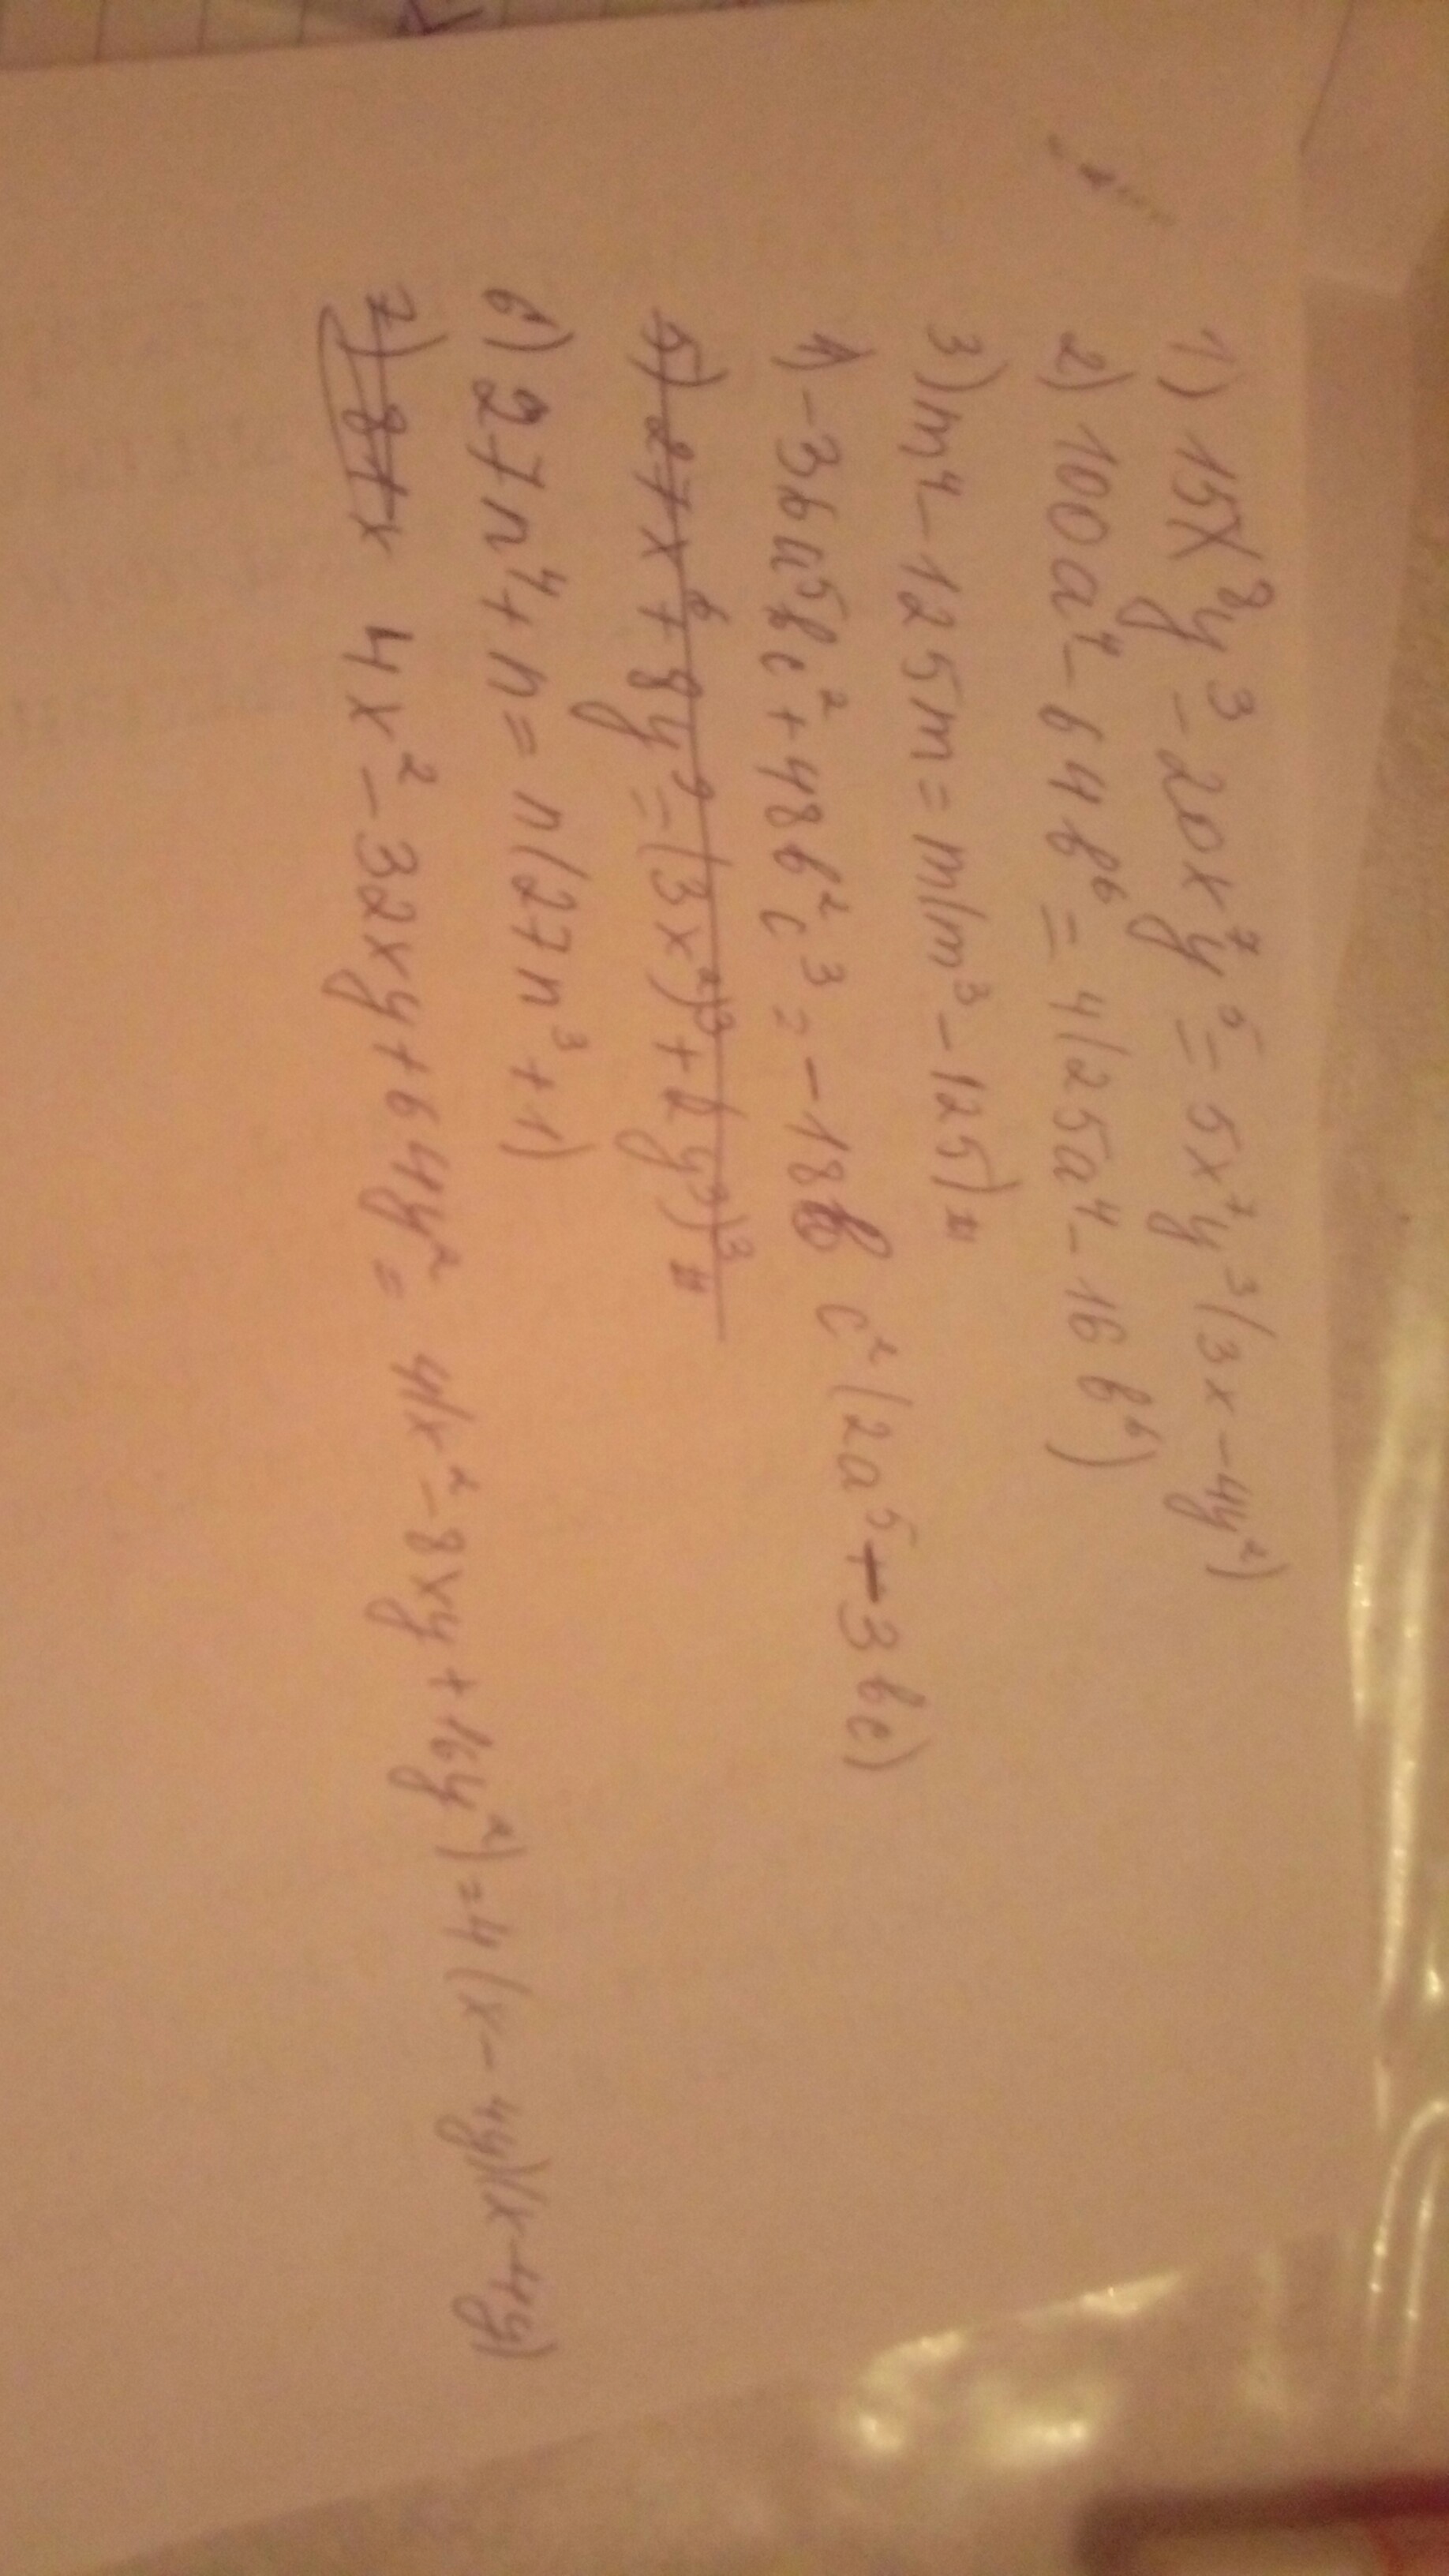 1) 15x⁸y³ - 20x⁷y⁵ = 5x⁷y³(3x - 4y²)
2) 100a⁴ - 64b⁶ = 4(25a⁴ - 16b⁶)
3) m⁴ - 125m = m(m³ - 125) =
4) -36a⁵bc² + 48b²c³ = -18bc²(2a⁵ - 3bc)
5) 27x⁶ + 8y⁹ = (3x²)³ + (2y³)³ =
6) 27n⁴ + n = n(27n³ + 1)
7) 4x² - 32xy + 64y² = 4(x² - 8xy + 16y²) = 4(x - 4y)(x - 4y)